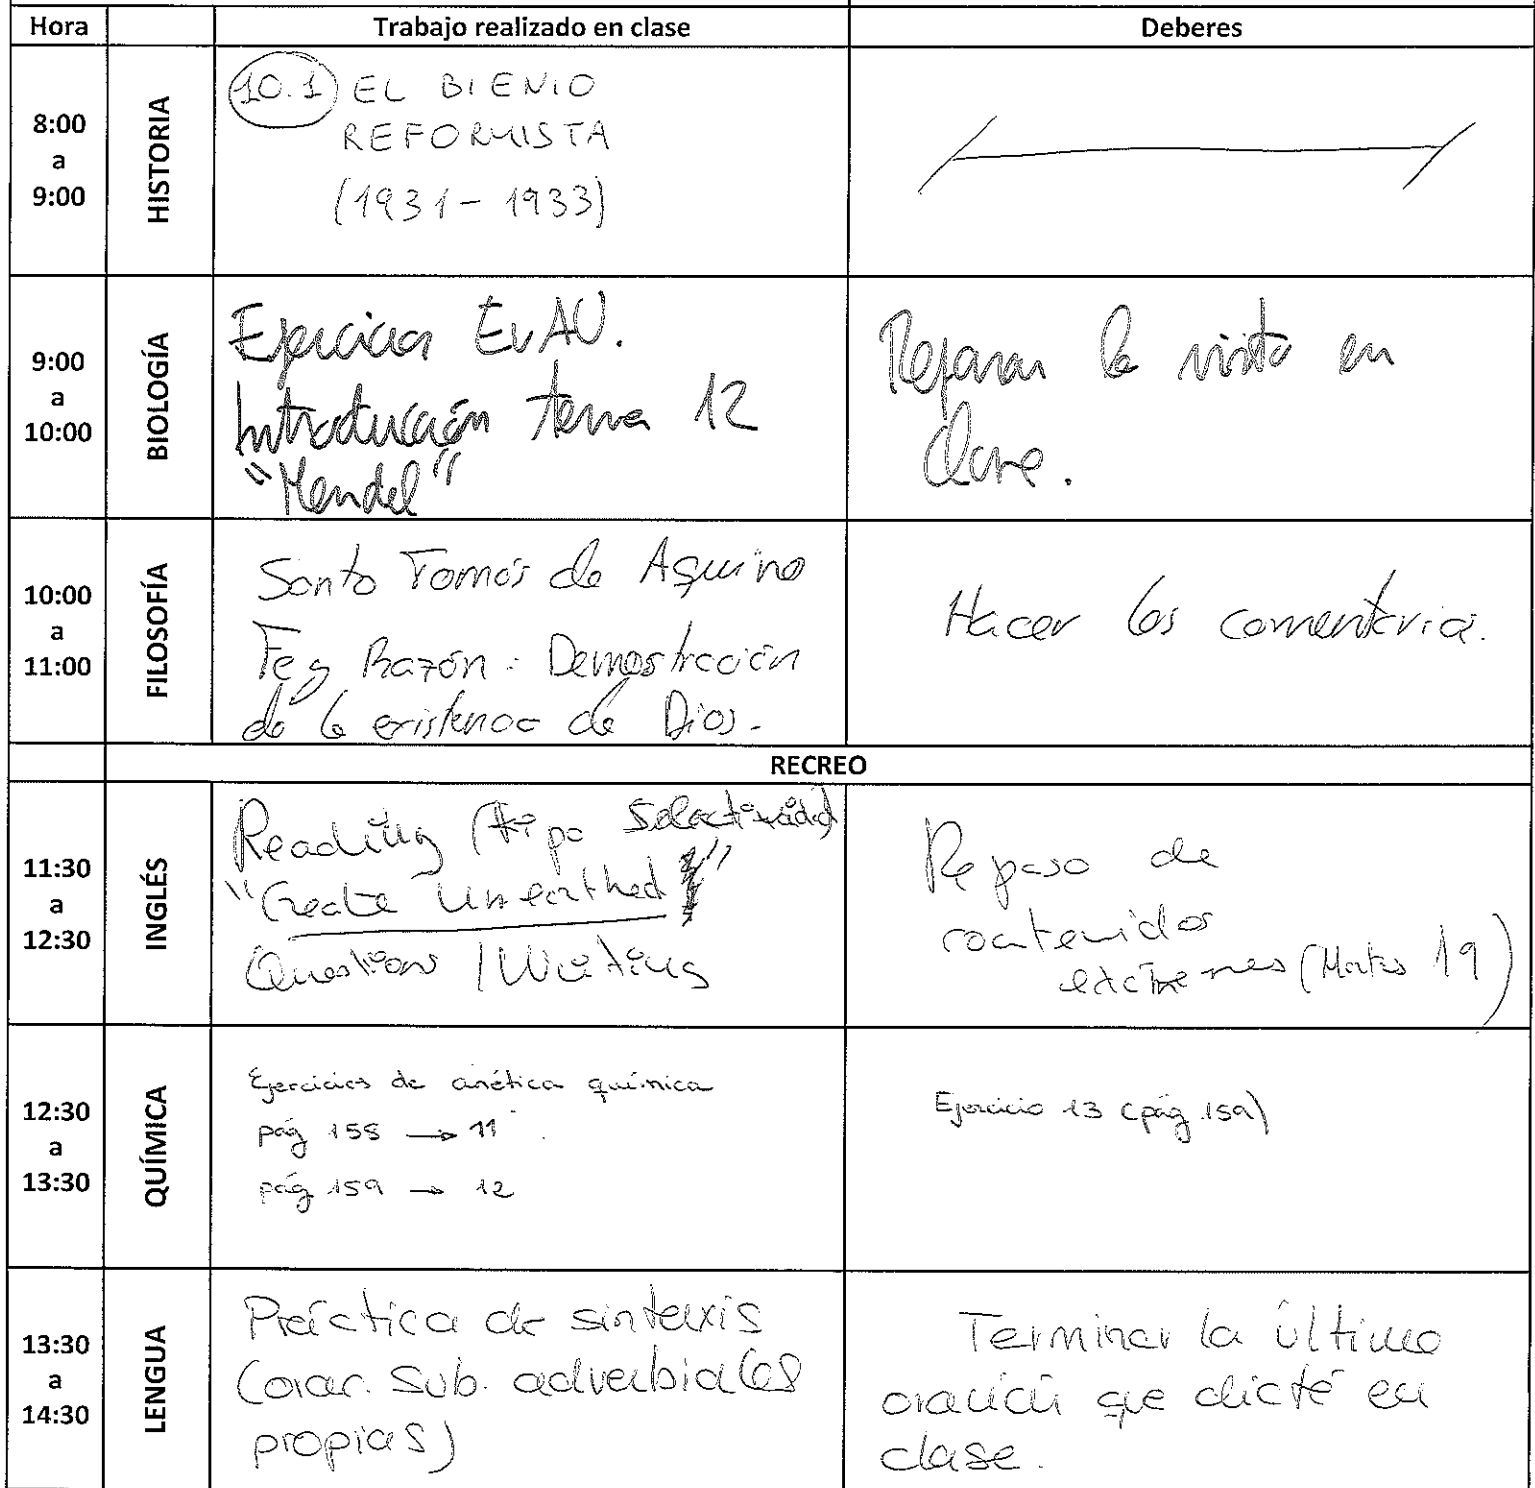 Hora Trabajo realizado en clase Deberes
8:00
a
9:00
HISTORIA
10.1 EL BIENIO
REFORMISTA
(1931 - 1933)
9:00
a
10:00
BIOLOGÍA
Ejercicios EvAU.
Introducción tema 12
"Mendel"
Repasar lo visto en
clase.
10:00
a
11:00
FILOSOFÍA
Santo Tomás de Aquino
Fe y Razón. Demostración
de la existencia de Dios.
Hacer los comentarios.
RECREO
11:30
a
12:30
INGLÉS
Reading (tipo Selectividad)
Unearthed"
Questions / Writing
Repaso de
contenidos
exámenes (Martes 19)
12:30
a
13:30
QUÍMICA
Ejercicios de cinética química
pág 158 → 11
pág 159 → 12
Ejercicio 13 (pág 159)
13:30
a
14:30
LENGUA
Práctica de sintaxis
(orac. sub. adverbiales
propias)
Terminar la última
oración que dicté en
clase.